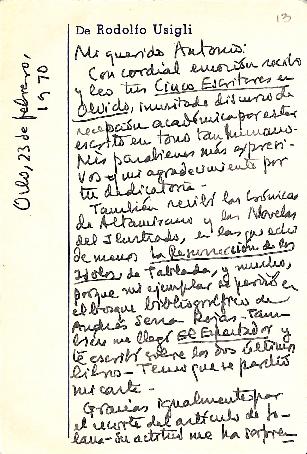 13
De Rodolfo Usigli
Oslo, 23 de febrero,
1970
Mi querido Antonio:
Con cordial emoción recibo
y leo tus Cinco Escritores en
Olvido, inusitado discurso de
recepción académica por estar
escrito en tono tan humano.
Mis parabienes más expresi-
vos y mi agradecimiento por
tu dedicatoria.
También recibí las Crónicas
de Altamirano y las Novelas
del Ilustrado, en las que echo
de menos la Resurrección de los
Ídolos de Tablada, y mucho,
porque mi ejemplar se perdió en
el bosque bibliográfico de
Andrés Serra Rojas. Tam-
bién me llegó El Espectador y
te escribí sobre los dos últimos
libros - Temo que se perdió
mi carta.
Gracias igualmente por
el recorte del artículo de So-
lana - Su actitud me ha sorpren-